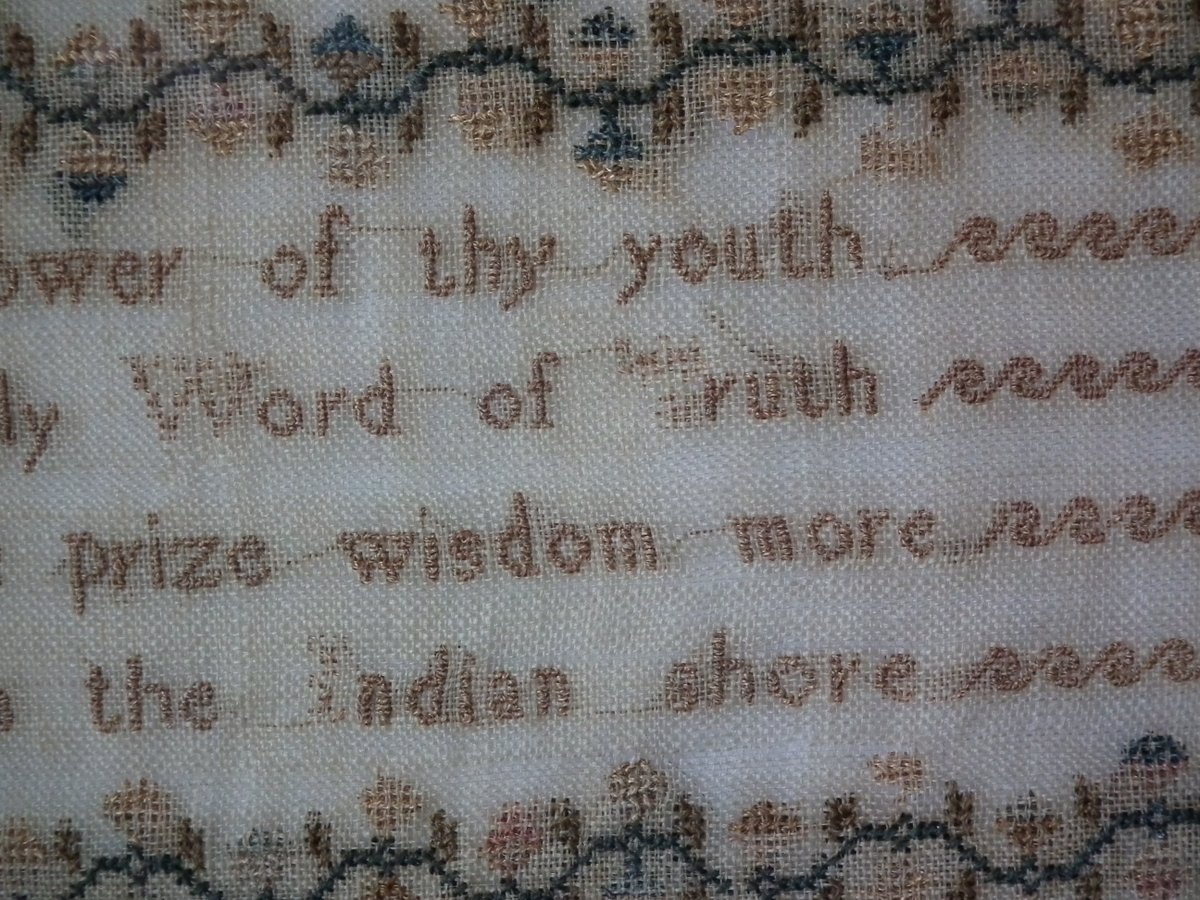 ower of thy youth
ly Word of Truth
prize wisdom more
the Indian shore